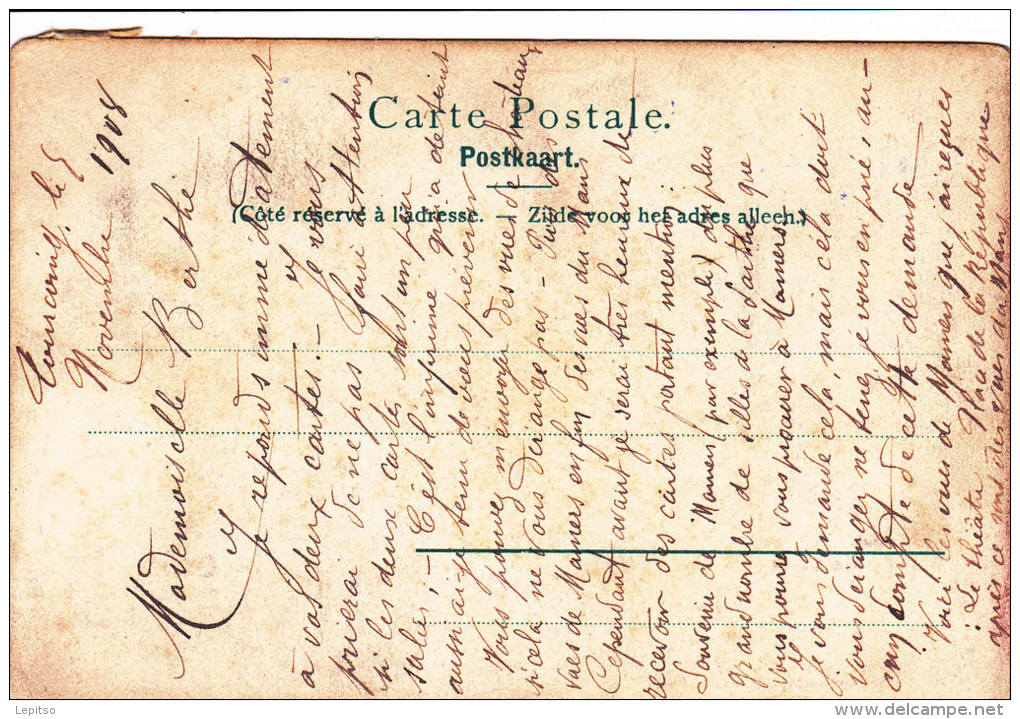 Carte Postale.
Postkaart.
(Côté réservé à l'adresse. — Zilde voor het adres alleen.)
Tourcoing, le 5
Novembre 1908
Mademoiselle Berthe
Je réponds immédiatement
à vos deux cartes. — Je vous
prierai de ne pas faire attention
si les deux cartes sont un peu
salies — C'est l'imprimé qui a déteint
aussi ai-je tenu de vous prévenir
Vous pouvez m'envoyer des vues de
si cela ne vous dérange pas — Puis des
vues de Mamers enfin des vues du Mans
Cependant avant je serai très heureux de
recevoir des cartes portant mention
Souvenir de Mamers (par exemple) du plus
grand nombre de villes de la Sarthe que
vous pourrez vous procurer à Mamers.
Je vous demande cela, mais si cela doit
vous déranger ne tenez je vous en prie, au-
cun compte de cette demande
Voici les vues de Mamers que j'ai reçues
Le théâtre Place de la République
après ce sont des vues du Mans
Lepitso
www.delcampe.net